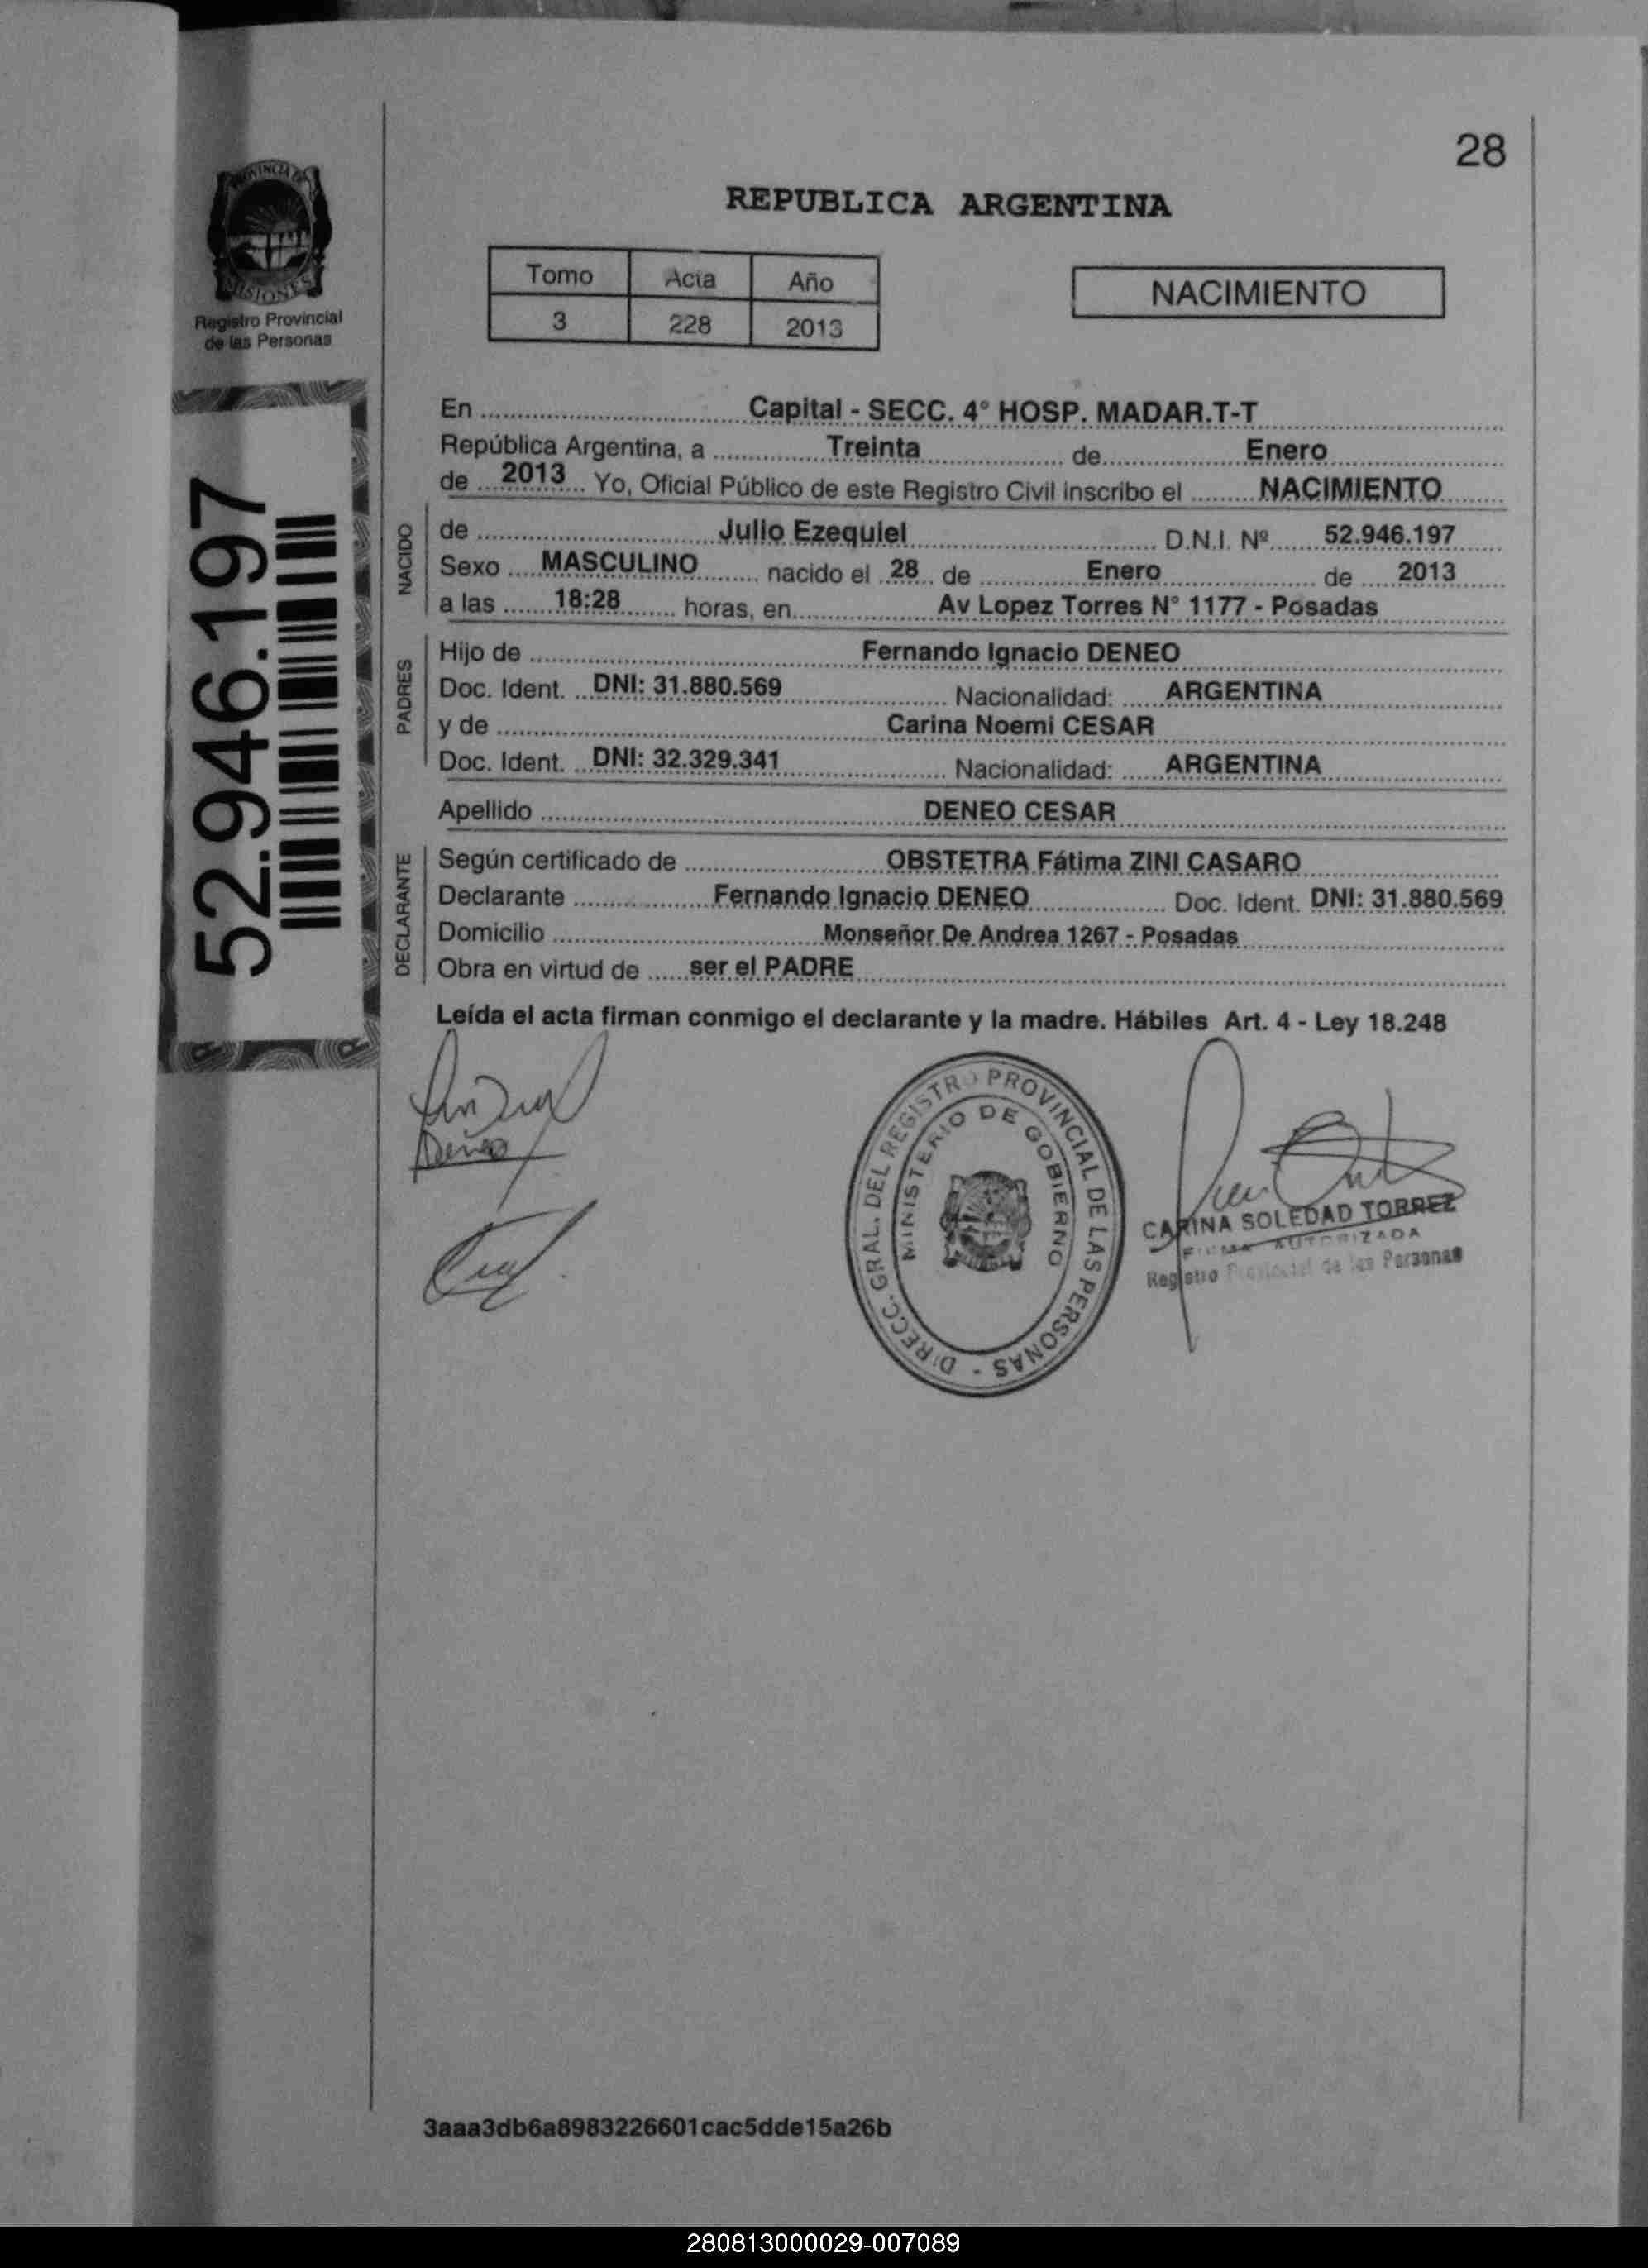 28
PROVINCIA DE
MISIONES
Registro Provincial
de las Personas
REPUBLICA ARGENTINA
Tomo Acta Año
3 228 2013
NACIMIENTO
52.946.197
En Capital - SECC. 4° HOSP. MADAR.T-T
República Argentina, a Treinta de Enero
de 2013 Yo, Oficial Público de este Registro Civil inscribo el NACIMIENTO
NACIDO
de Julio Ezequiel D.N.I. Nº 52.946.197
Sexo MASCULINO nacido el 28 de Enero de 2013
a las 18:28 horas, en Av Lopez Torres N° 1177 - Posadas
PADRES
Hijo de Fernando Ignacio DENEO
Doc. Ident. DNI: 31.880.569 Nacionalidad: ARGENTINA
y de Carina Noemi CESAR
Doc. Ident. DNI: 32.329.341 Nacionalidad: ARGENTINA
Apellido DENEO CESAR
DECLARANTE
Según certificado de OBSTETRA Fátima ZINI CASARO
Declarante Fernando Ignacio DENEO Doc. Ident. DNI: 31.880.569
Domicilio Monseñor De Andrea 1267 - Posadas
Obra en virtud de ser el PADRE
Leída el acta firman conmigo el declarante y la madre. Hábiles Art. 4 - Ley 18.248
Deneo
DIRECC. GRAL. DEL REGISTRO PROVINCIAL DE LAS PERSONAS -
MINISTERIO DE GOBIERNO
CARINA SOLEDAD TORREZ
FIRMA AUTORIZADA
Registro Provincial de las Personas
3aaa3db6a8983226601cac5dde15a26b
280813000029-007089